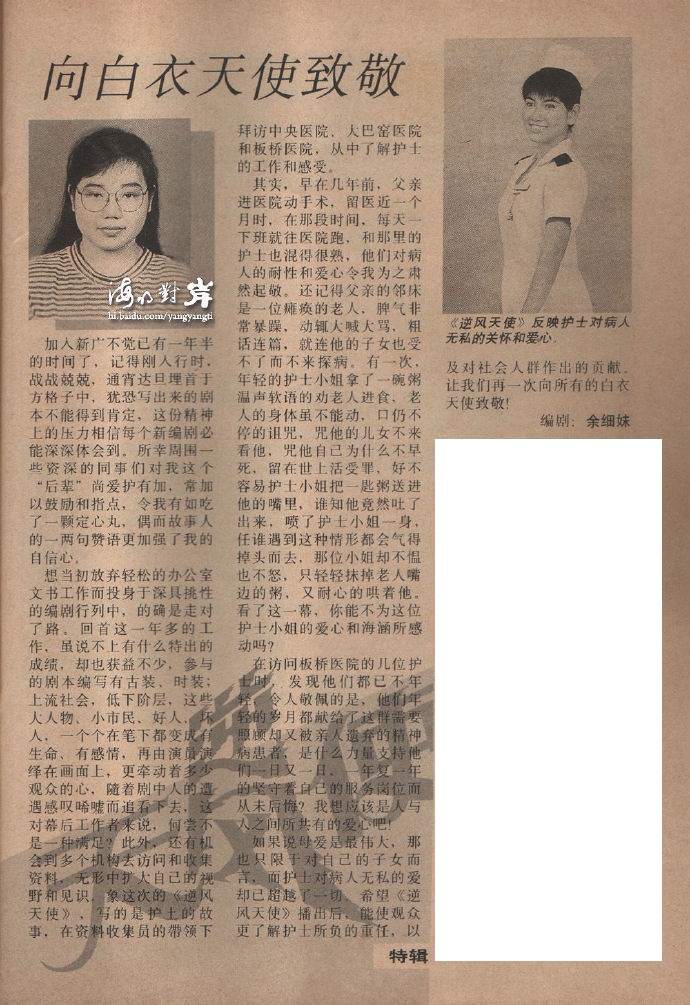 向白衣天使致敬
海的對岸
hi.baidu.com/yangyangti
加入新广不觉已有一年半
的时间了，记得刚入行时，
战战兢兢，通宵达旦埋首于
方格子中，犹恐写出来的剧
本不能得到肯定，这份精神
上的压力相信每个新编剧必
能深深体会到。所幸周围一
些资深的同事们对我这个
“后辈”尚爱护有加，常加
以鼓励和指点，令我有如吃
了一颗定心丸，偶而故事人
的一两句赞语更加强了我的
自信心。
想当初放弃轻松的办公室
文书工作而投身于深具挑性
的编剧行列中，的确是走对
了路。回首这一年多的工
作，虽说不上有什么特出的
成绩，却也获益不少，参与
的剧本编写有古装、时装；
上流社会，低下阶层，这些
大人物、小市民、好人、坏
人，一个个在笔下都变成有
生命、有感情，再由演员演
绎在画面上，更牵动着多少
观众的心，随着剧中人的遭
遇感叹唏嘘而追看下去，这
对幕后工作者来说，何尝不
是一种满足？此外，还有机
会到多个机构去访问和收集
资料，无形中扩大自己的视
野和见识。象这次的《逆风
天使》，写的是护士的故
事，在资料收集员的带领下
拜访中央医院、大巴窑医院
和板桥医院，从中了解护士
的工作和感受。
其实，早在几年前，父亲
进医院动手术，留医近一个
月时，在那段时间，每天一
下班就往医院跑，和那里的
护士也混得很熟，他们对病
人的耐性和爱心令我为之肃
然起敬。还记得父亲的邻床
是一位瘫痪的老人，脾气非
常暴躁，动辄大喊大骂，粗
话连篇，就连他的子女也受
不了而不来探病。有一次，
年轻的护士小姐拿了一碗粥
温声软语的劝老人进食，老
人的身体虽不能动，口仍不
停的诅咒，咒他的儿女不来
看他，咒他自己为什么不早
死，留在世上活受罪，好不
容易护士小姐把一匙粥送进
他的嘴里，谁知他竟然吐了
出来，喷了护士小姐一身，
任谁遇到这种情形都会气得
掉头而去，那位小姐却不愠
也不怒，只轻轻抹掉老人嘴
边的粥，又耐心的哄着他。
看了这一幕，你能不为这位
护士小姐的爱心和海涵所感
动吗？
在访问板桥医院的几位护
士时，发现他们都已不年
轻，令人敬佩的是，他们年
轻的岁月都献给了这群需要
照顾却又被亲人遗弃的精神
病患者，是什么力量支持他
们一日又一日，一年复一年
的坚守着自己的服务岗位而
从未后悔？我想应该是人与
人之间所共有的爱心吧！
如果说母爱是最伟大，那
也只限于对自己的子女而
言，而护士对病人无私的爱
却已超越了一切。希望《逆
风天使》播出后，能使观众
更了解护士所负的重任，以
《逆风天使》反映护士对病人
无私的关怀和爱心。
及对社会人群作出的贡献。
让我们再一次向所有的白衣
天使致敬！
编剧：余细妹
特辑